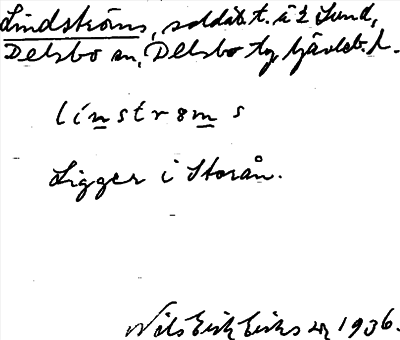 Lindströms, soldatt. å 2 Sund,
Delsbo sn, Delsbo tg, Gävleb. l.
línstrøm s
Ligger i Storån.
Nils Erik Eriks 1936.